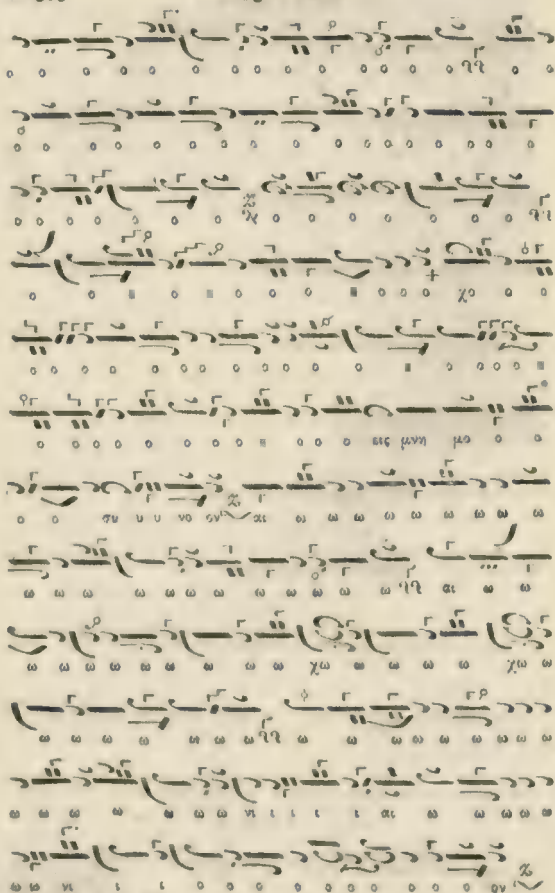 ο ο ο ο ο ο ο ο ο ο ο ο ο ο ο
ο ο ο ο ο ο ο ο ο ο ο ο ο ο ο ο ο ο
ο ο ο ο ο ο ο ο ο ο ο ο ο ο ο ο
ο ο ο ο ο ο ο ο ο χο ο ο
ο ο ο ο ο ο ο ο ο ο ο ο ο ο ο ο ο ο
ο ο ο ο ο ο ο ο ο ο ο εις μνη μο ο ο
ο ο συ υ υ νο ον αι ω ω ω ω ω ω ω ω ω
ω ω ω ω ω ω ω ω ω ω ω ω αι ω ω
ω ω ω ω ω ω ω ω ω χω ω ω ω ω χω ω
ω ω ω ω ω ω ω ω ω ω ω ω ω ω ω ω
ω ω ω ω ω ω ω νι ι ι ι ι αι ω ω ω ω ω
ω ω νι ι ι ο ο ο ο ο ο ο ο ο ο ο ον